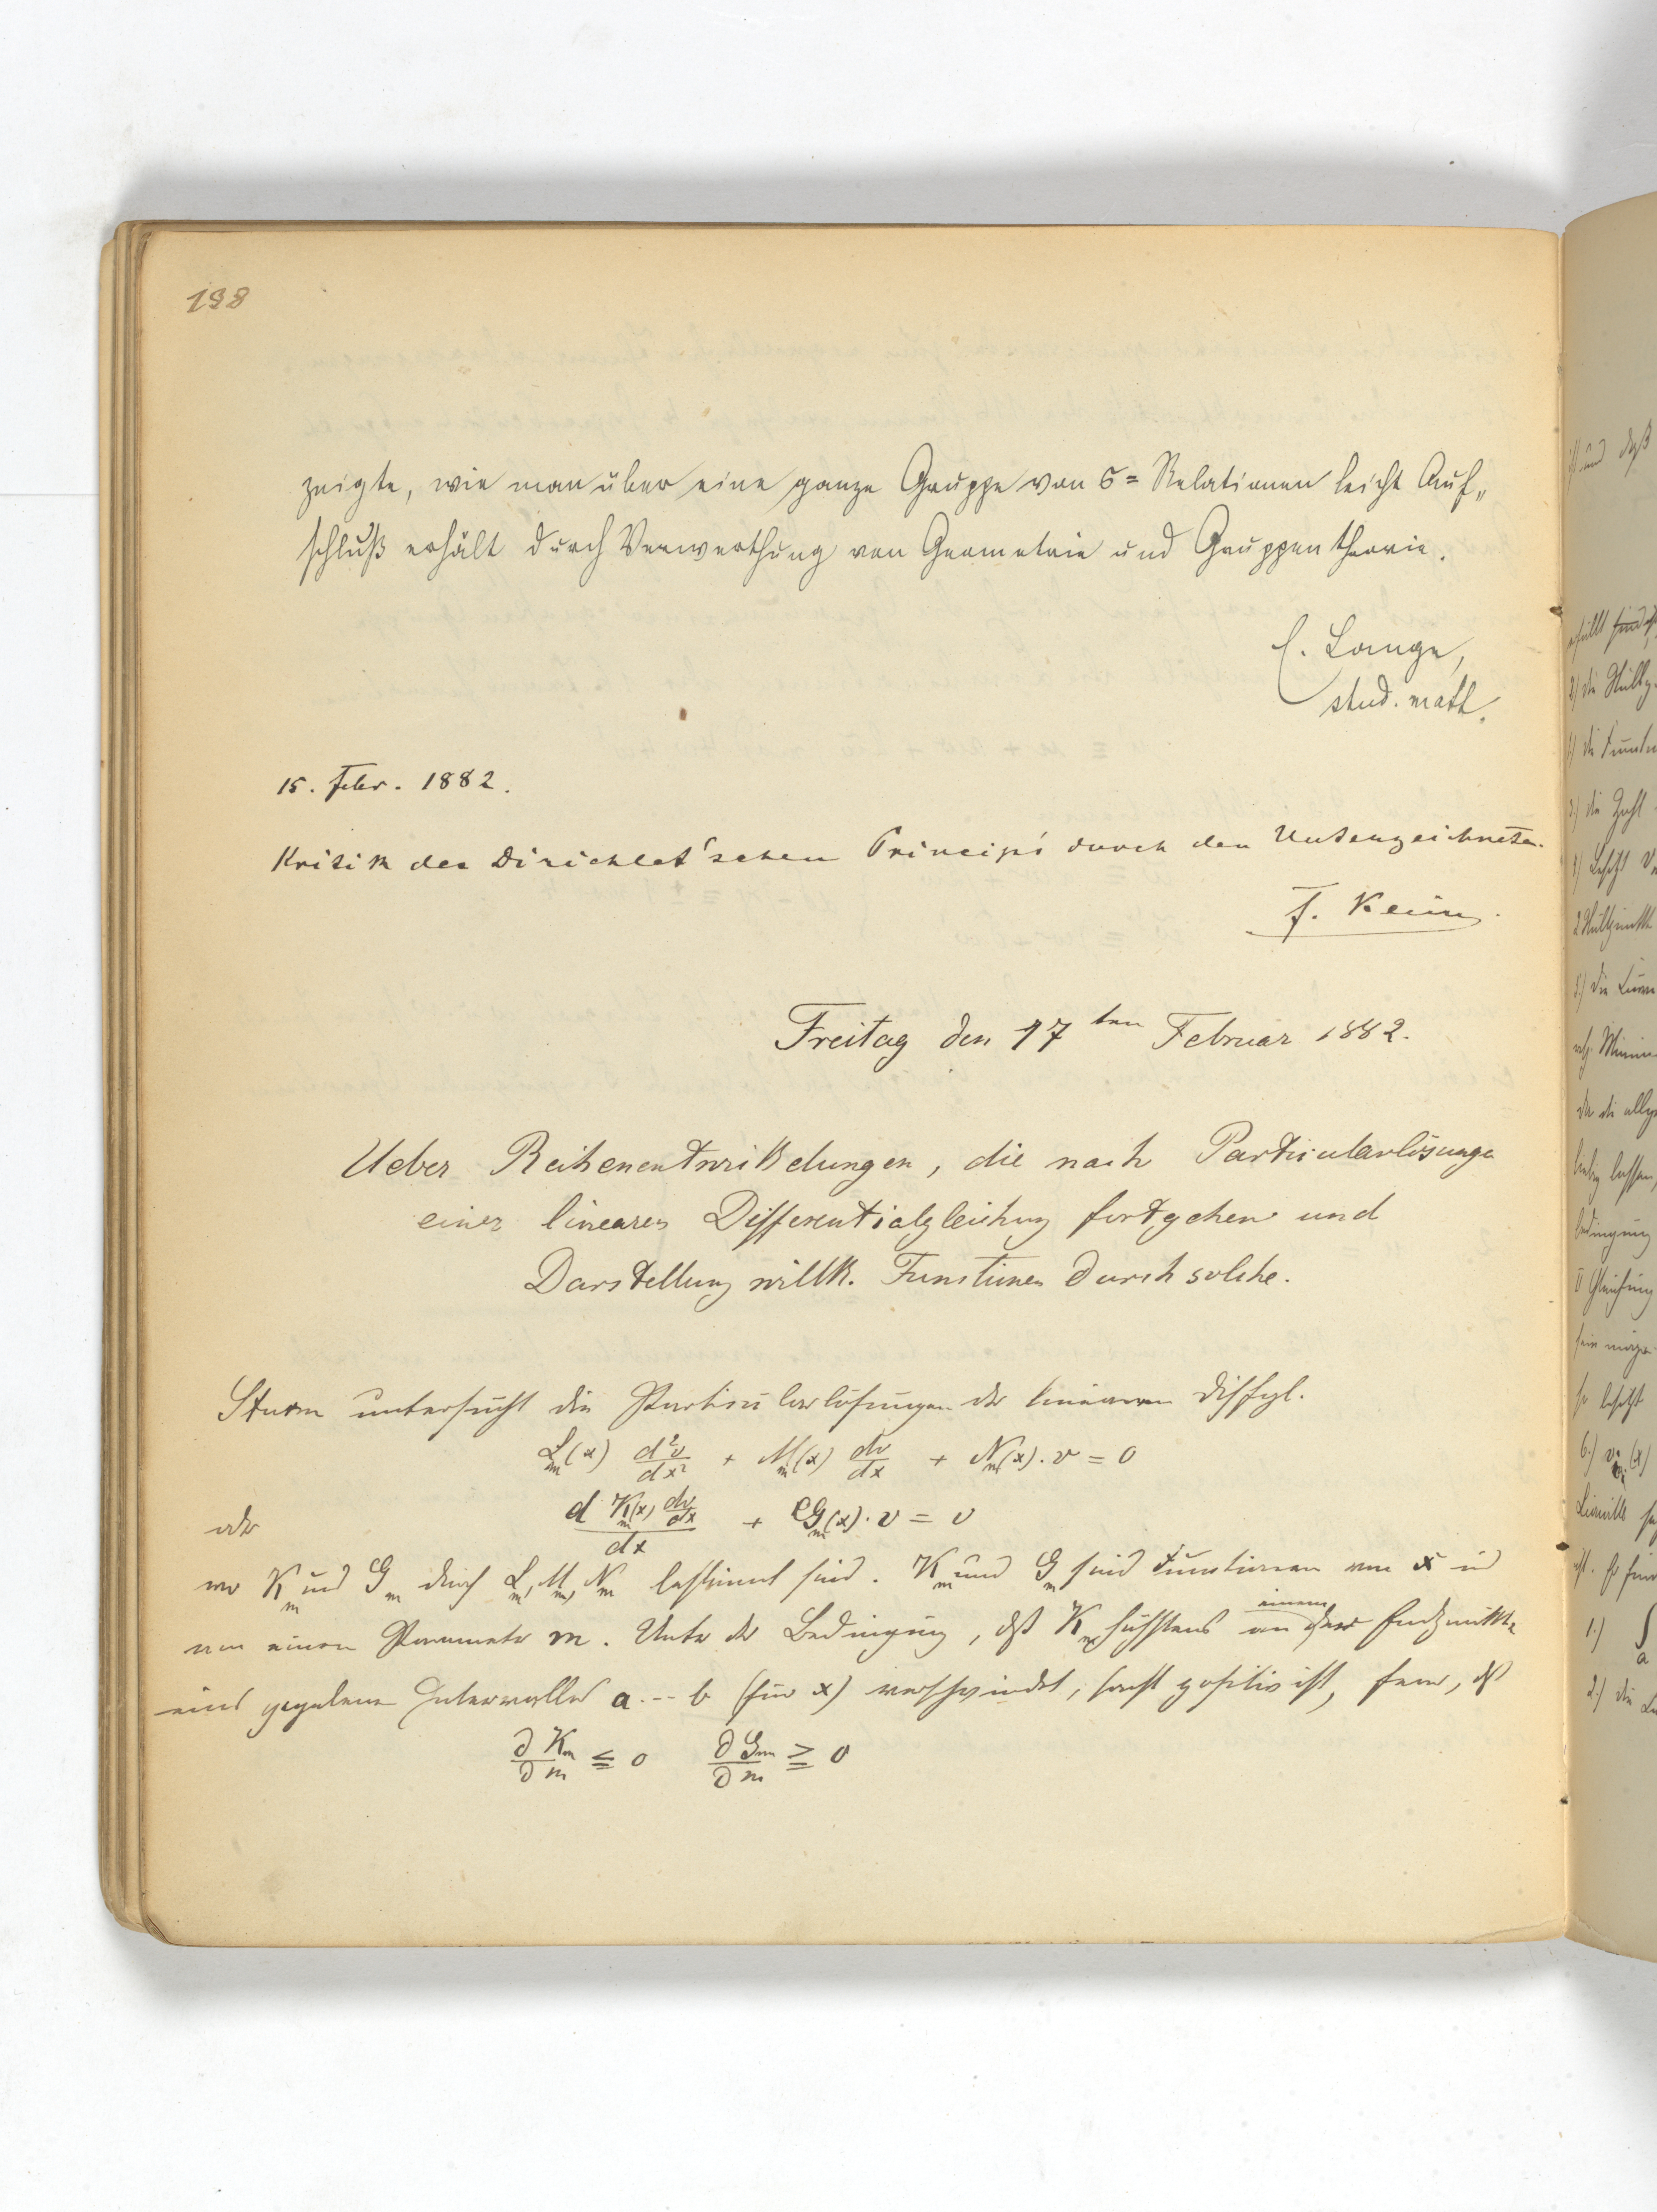 198
zeigte, wie man über eine ganze Gruppe von σ=Relationen leicht Auf„
schluß erhält durch Verwerthung von Geometrie und Gruppentheorie.
E. Lange,
stud. math.
15. Febr. 1882.
Kritik des Dirichlet'schen Princips durch den Unterzeichneten.
F. Klein
Freitag den 17ten Februar 1882.
Ueber Reihenentwickelungen, die nach Particularlösungen
einer linearen Differentialgleichung fortgehen und
Darstellung willk. Functionen durch solche.
Sturm untersucht die Particularlösungen der linearen Diffgl.
L_m(x) d²v/dx² + M_m(x) dv/dx + N_m(x).v = 0
oder d K_m(x) dv/dx / dx + G_m(x).v = 0
wo K_m und G_m durch L_m, M_m, N_m bestimmt sind. K_m und G_m sind Functionen von x und
von einem Parameter m. Unter der Bedingung, dß K_m höchstens an einem der Endpunkte
eines gegebenen Intervalles a...b (für x) verschwindet, sonst positiv ist, ferner, dß
∂K_m/∂m ≦ 0 ∂G_m/∂m ≧ 0
ist und daß
erfüllt
2) die
3) die Zahl
5) die
da die
lassen,
bedingung
so besitzt
6.)
Liouville
1.) ∫
a
2.) die